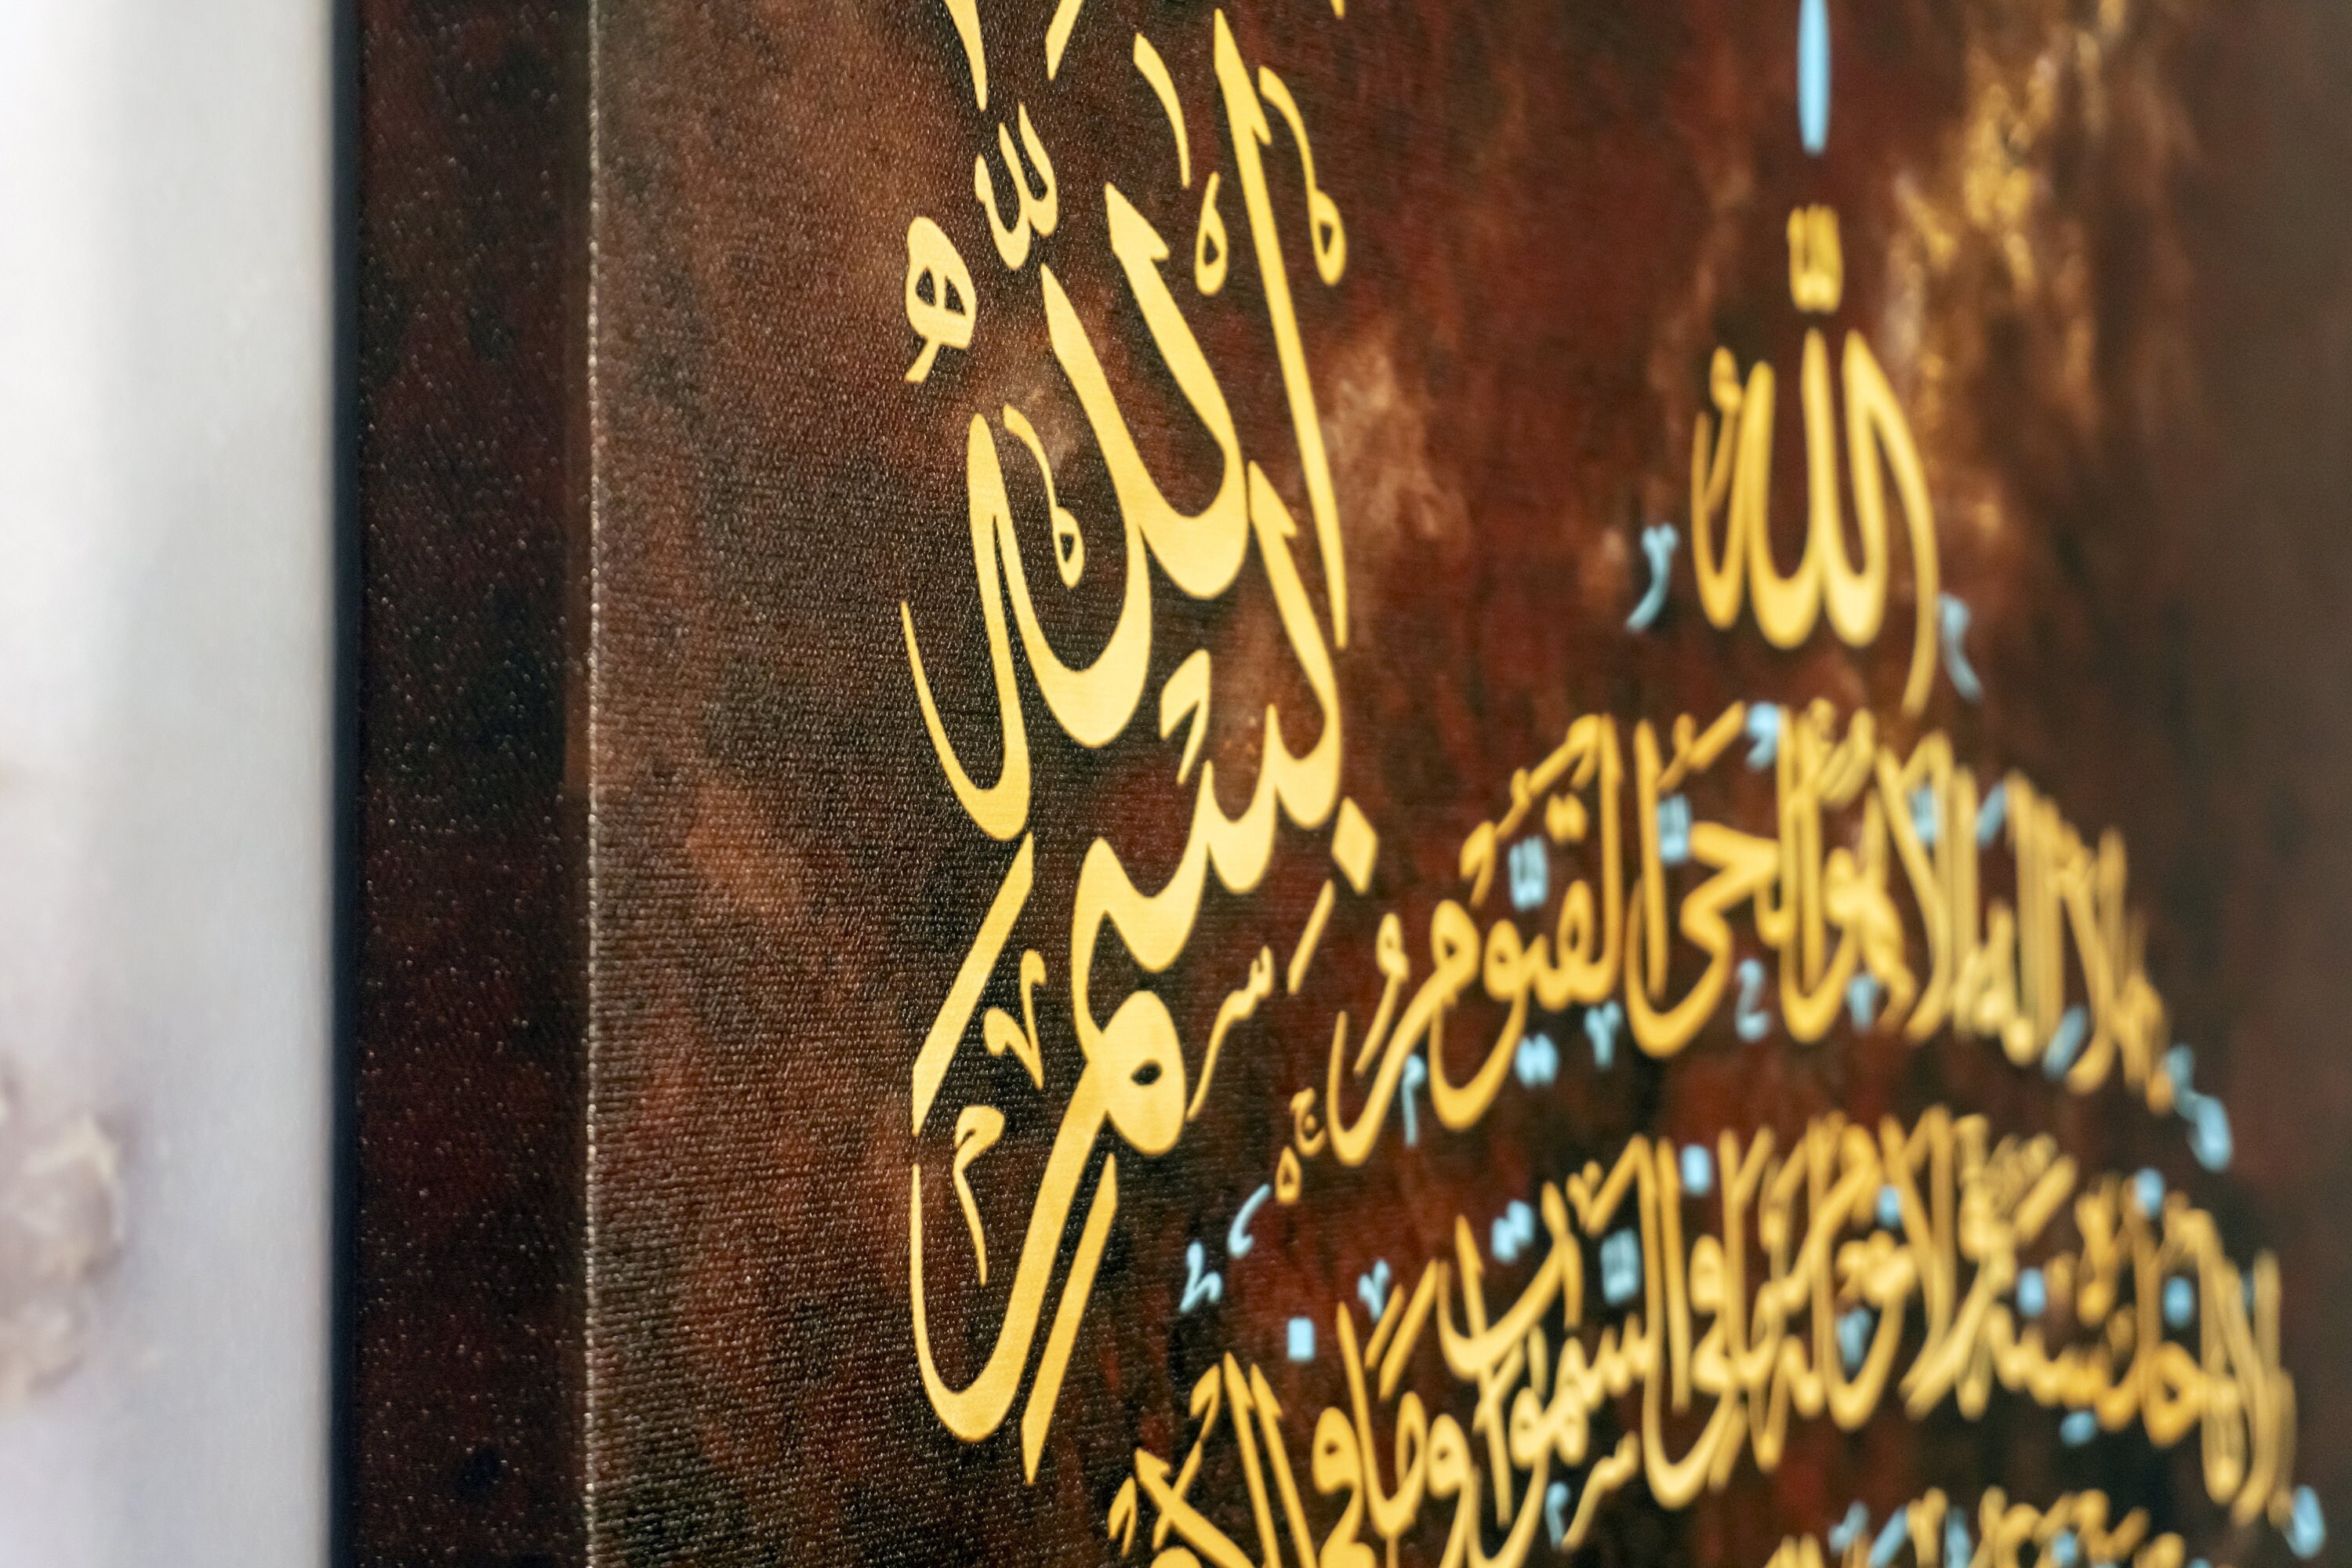 بسم الله
الله
لا إله إلا هو الحي القيوم
لا تأخذه سنة ولا نوم له ما في السموات وما في